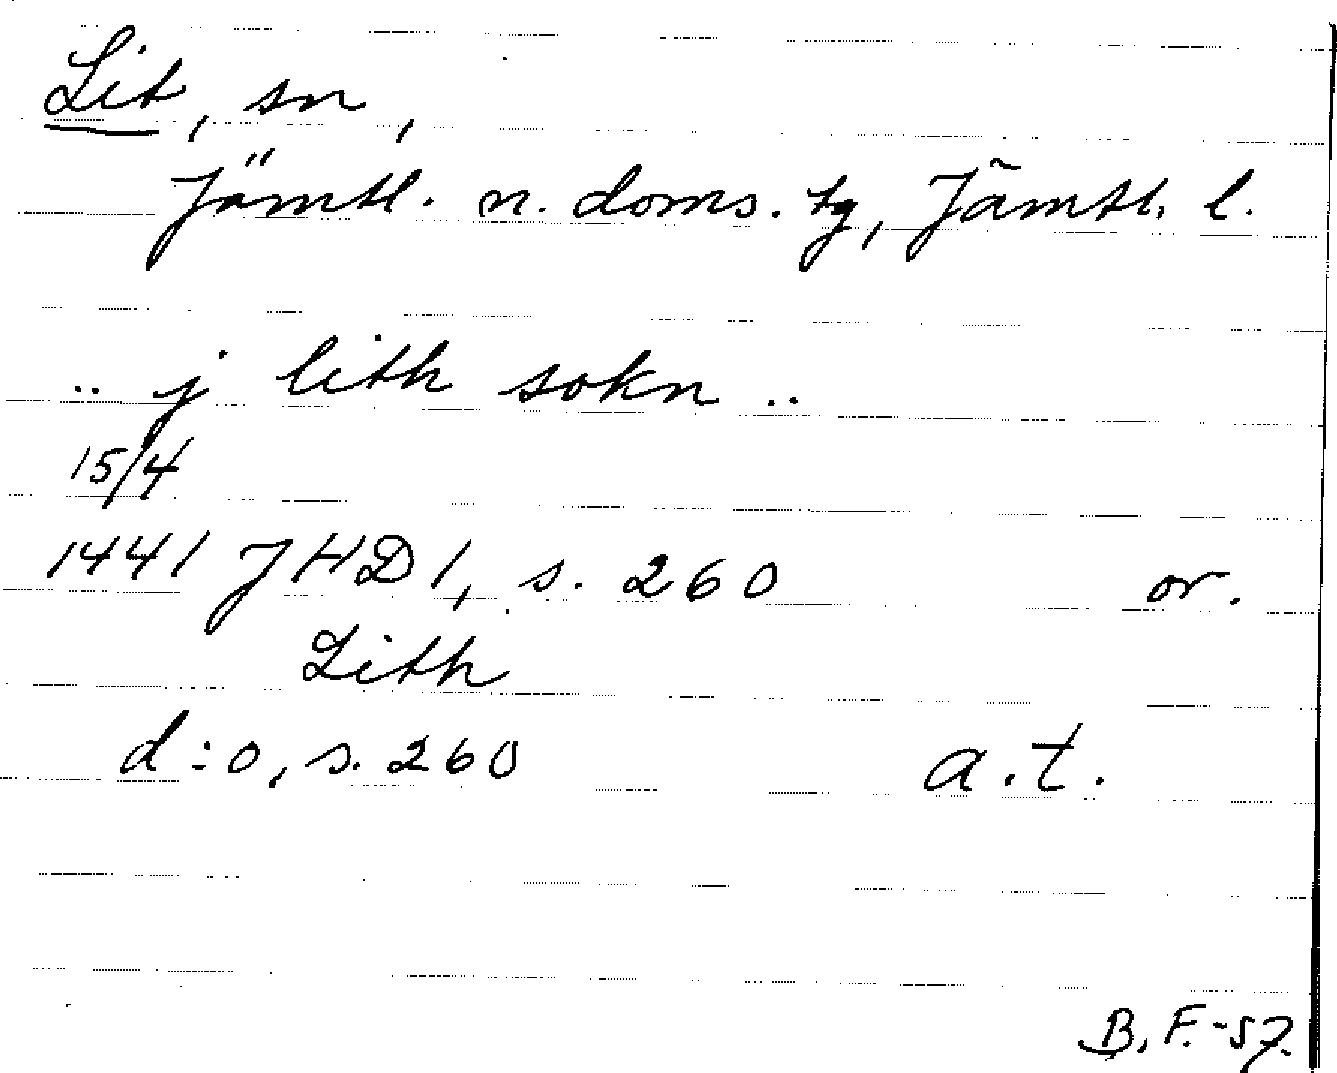 Lit, sn,
Jämtl. n. doms. tg, Jämtl. l.
.. j lith sokn ..
15/4
1441 JHD 1, s. 260 or.
Lith
d:o, s. 260 a.t.
B. F. -57.